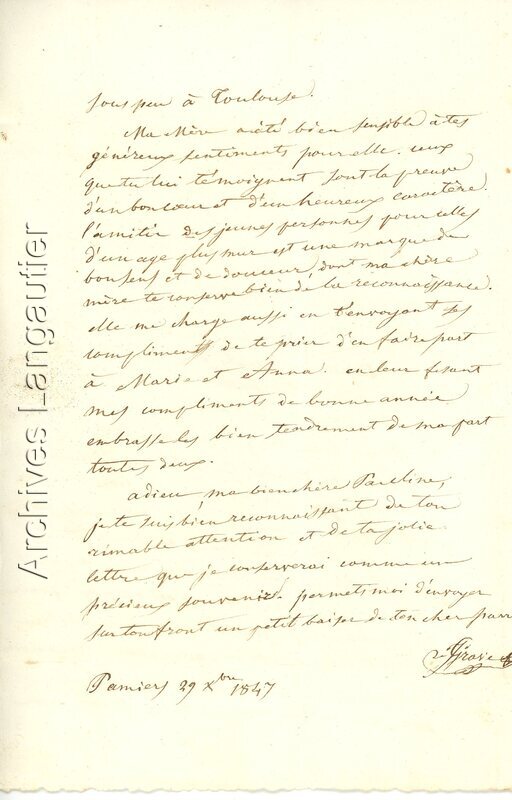 sous peu à Toulouse.
Ma Mère a été bien sensible à tes
généreux sentiments pour elle. ceux
que tu lui témoignent sont la preuve
d'un bon cœur et d'un heureux caractère.
l'amitié des jeunes personnes pour celles
d'un age plus mur est une marque de
bon sens et de douceur, dont ma chère
mère te conserve bien de la reconnaissance.
elle me charge aussi en t'envoyant ses
compliments de te prier d'en faire part
à Marie et Anna. en leur fesant
mes compliments de bonne année
embrasse les bien tendrement de ma part
toutes deux.
adieu, ma bien chère Pauline,
je te suis bien reconnaissant de ton
aimable attention et de ta jolie
lettre que je conserverai comme un
précieux souvenir. permets moi d'envoyer
sur ton front un petit baiser de ton cher
Pamiers 29 Xbre 1847
Archives Langautier